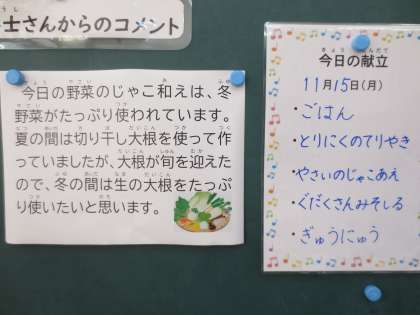 士さんからのコメント
今日の野菜のじゃこ和えは、冬
野菜がたっぷり使われています。
夏の間は切り干し大根を使って作
っていましたが、大根が旬を迎えた
ので、冬の間は生の大根をたっぷ
り使いたいと思います。
今日の献立
11月15日(月)
・ごはん
・とりにくのてりやき
・やさいのじゃこあえ
・ぐだくさんみそしる
・ぎゅうにゅう